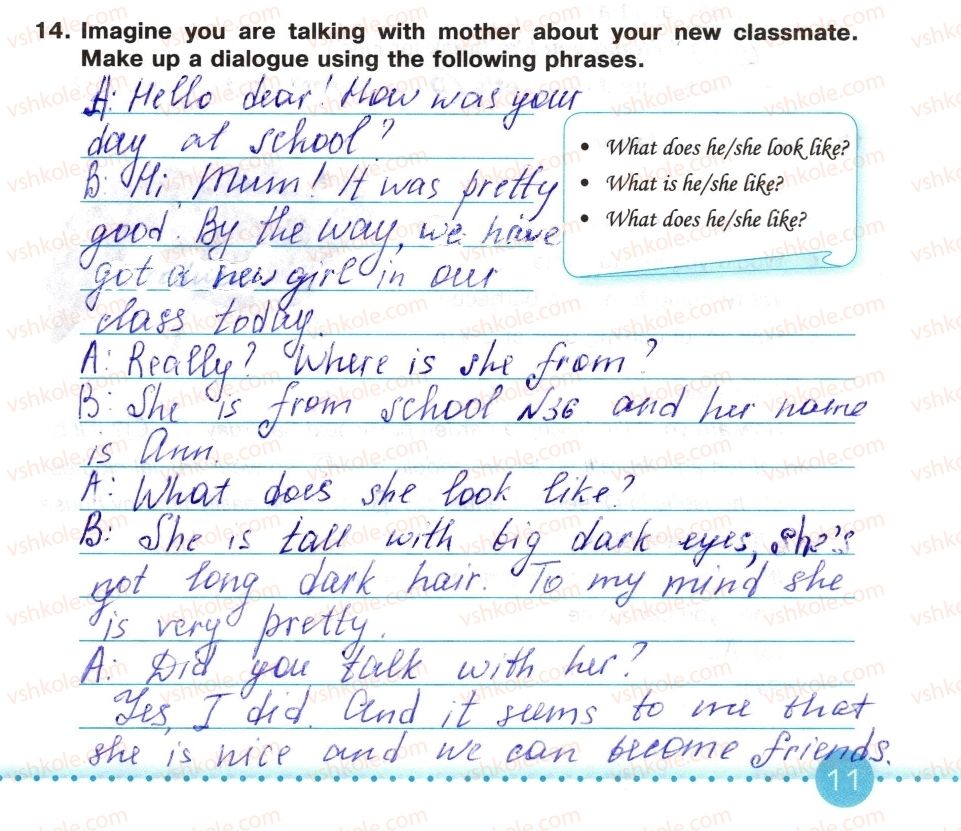 14. Imagine you are talking with mother about your new classmate.
Make up a dialogue using the following phrases.
A: Hello dear! How was your
day at school?
B: Hi, Mum! It was pretty
good. By the way, we have
got a new girl in our
class today.
• What does he/she look like?
• What is he/she like?
• What does he/she like?
A: Really? Where is she from?
B: She is from school N36 and her name
is Ann.
A: What does she look like?
B: She is tall with big dark eyes, she's
got long dark hair. To my mind she
is very pretty.
A: Did you talk with her?
Yes, I did. And it seems to me that
she is nice and we can become friends.
11
vshkole.com